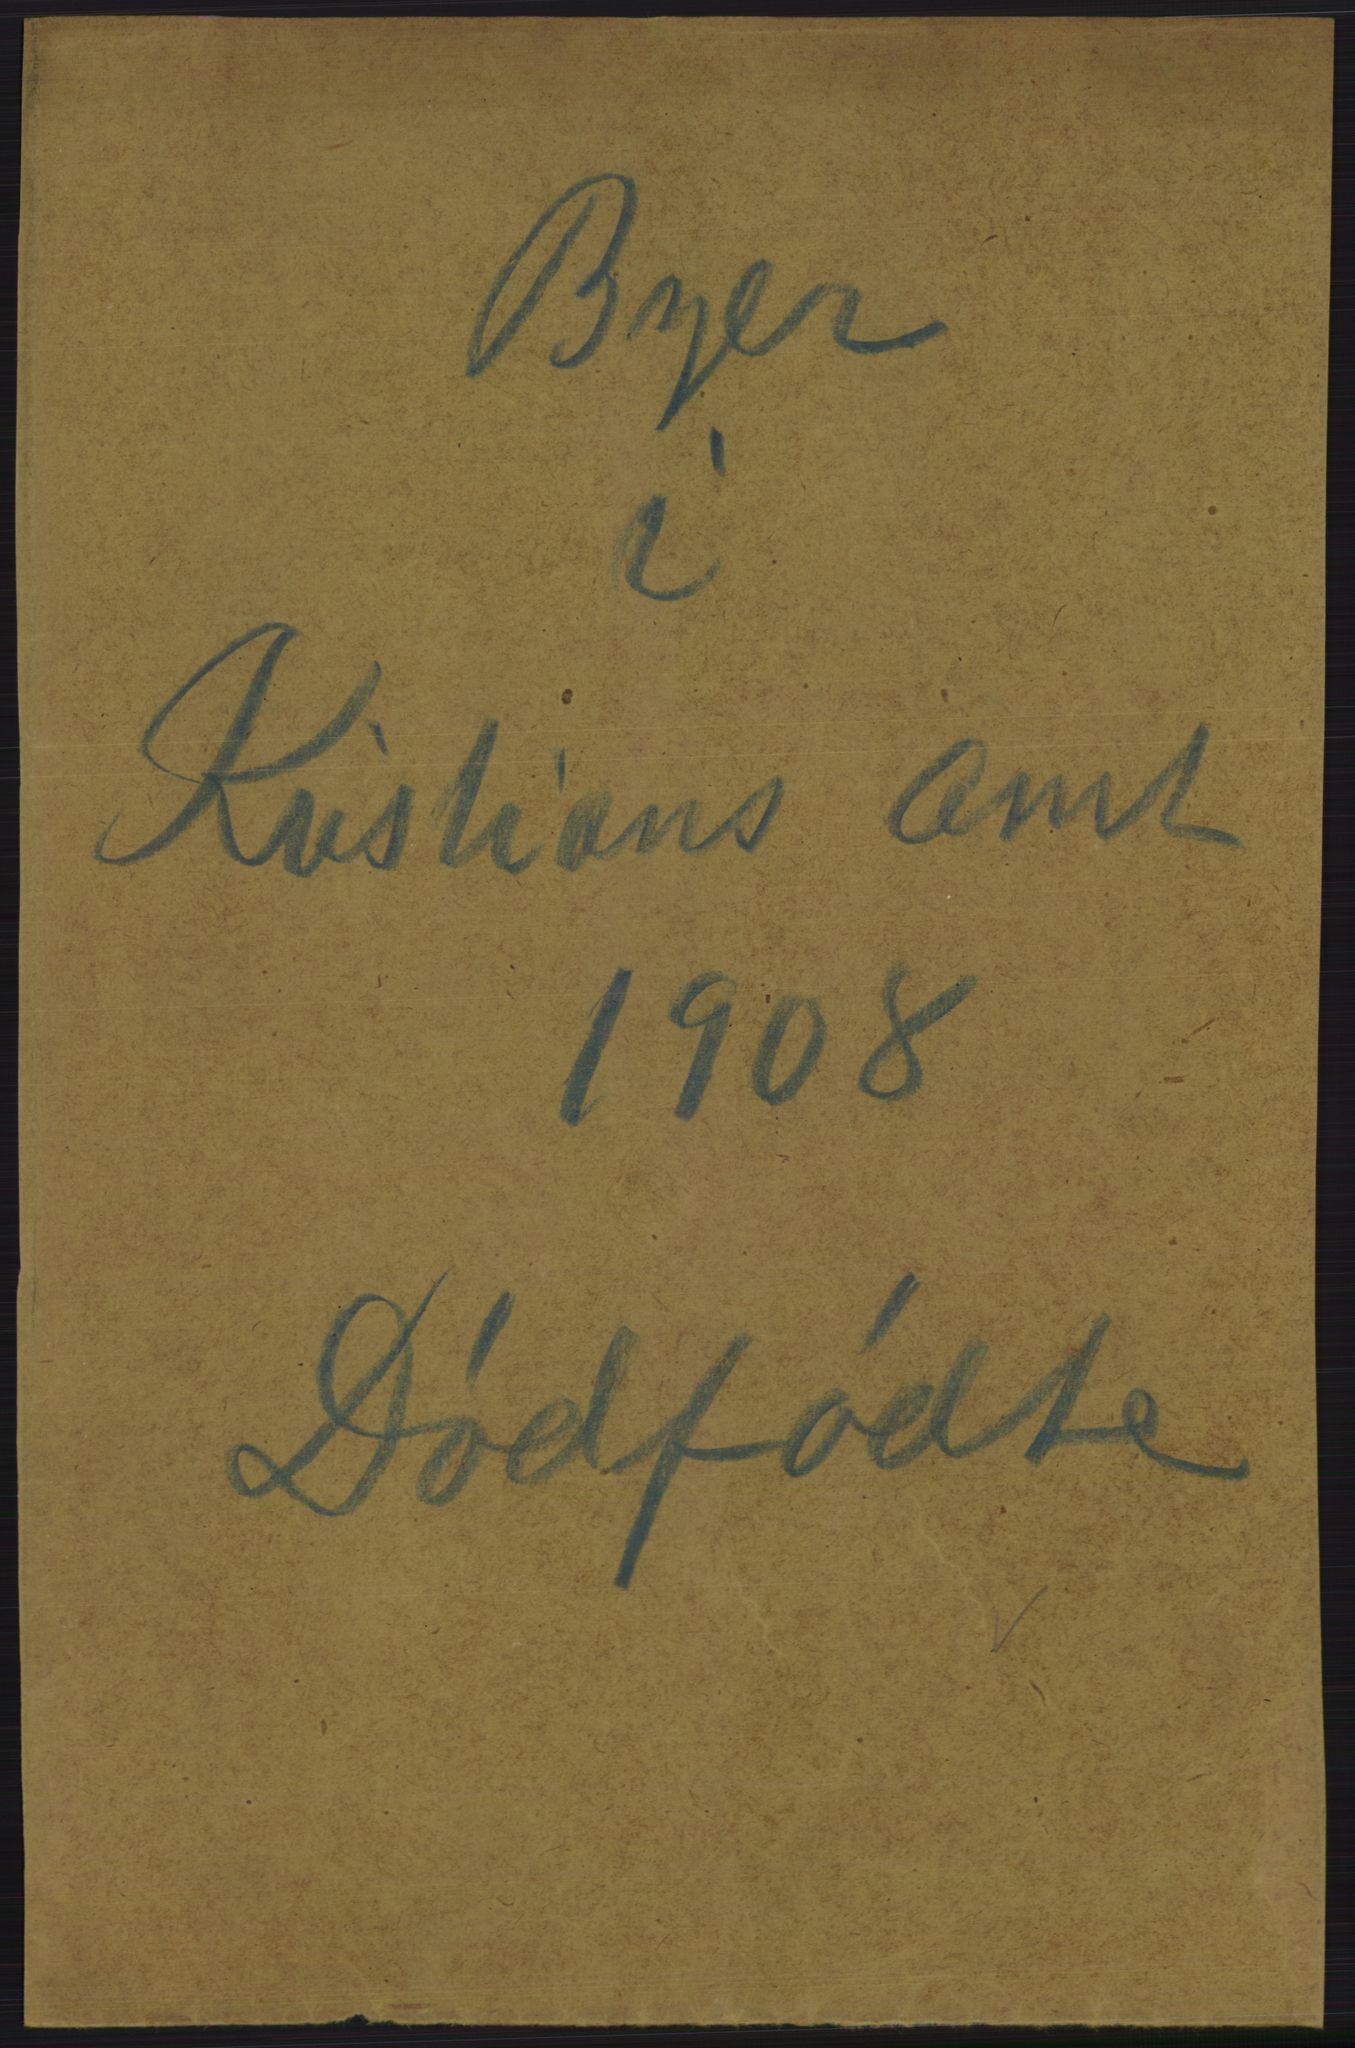 Byer
i
Kristians amt
1908
Dødfødte